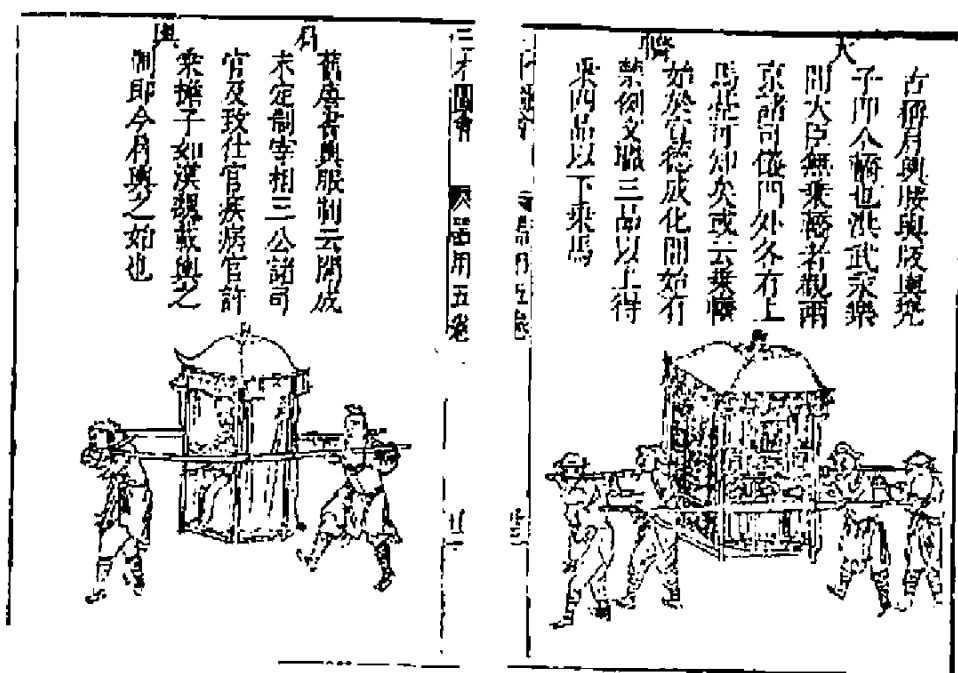 大轎
古稱肩輿腰輿版輿兜
子即今轎也洪武永樂
間大臣無乘轎者觀兩
京諸司儀門外各有上
馬臺可知矣或云乘轎
始於宣德成化間始有
禁例文職三品以上得
乘四品以下乘馬
三才圖會
器用五卷
肩輿
舊唐書輿服制云開成
末定制宰相三公諸司
官及致仕官疾病官許
乘擔子如漢魏載輿之
制即今肩輿之始也